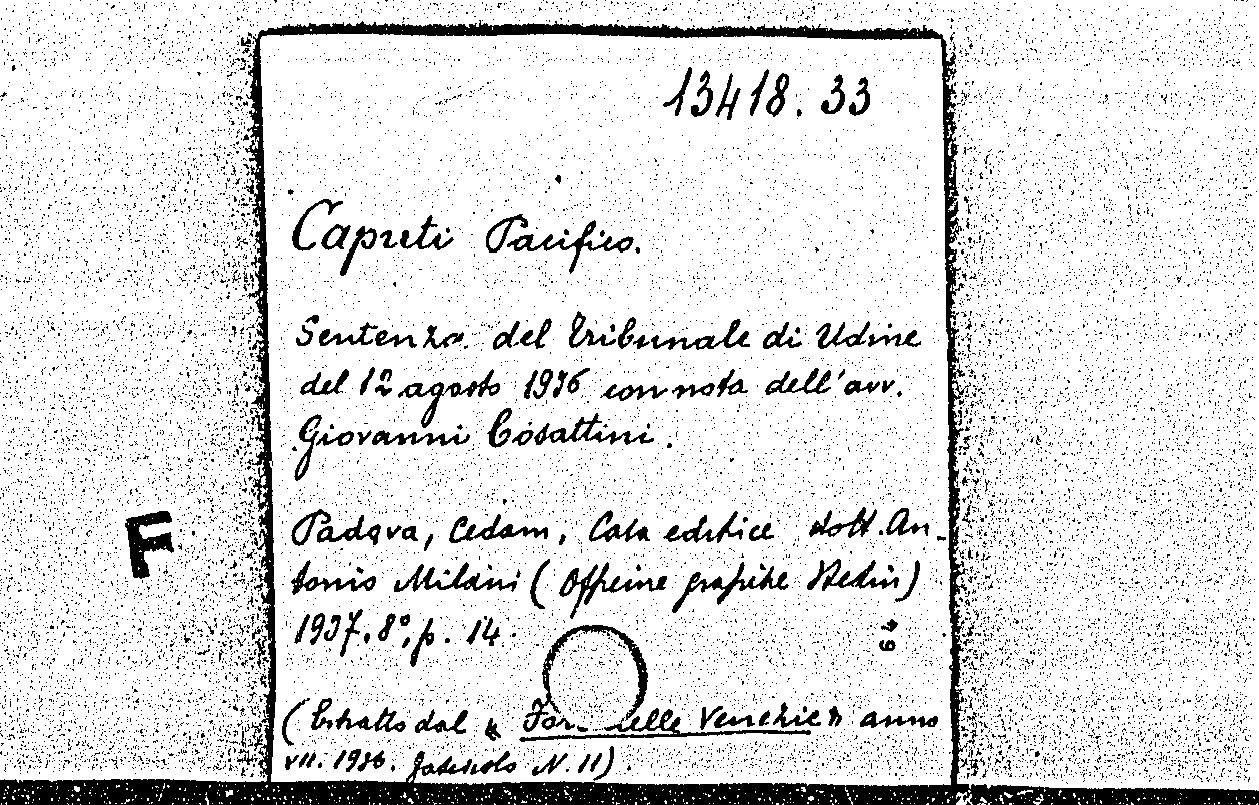 13418.33
Capreti Pacifico.
Sentenza del Tribunale di Udine
del 12 agosto 1936 con nota dell'avv.
Giovanni Cosattini.
F
Padova, Cedam, Casa editrice dott. An-
tonio Milani (Officine grafiche Stediv)
1937. 8°, p. 14.
64
(Estratto dal « Foro delle Venezie » anno
VII. 1936. fascicolo N. 11).